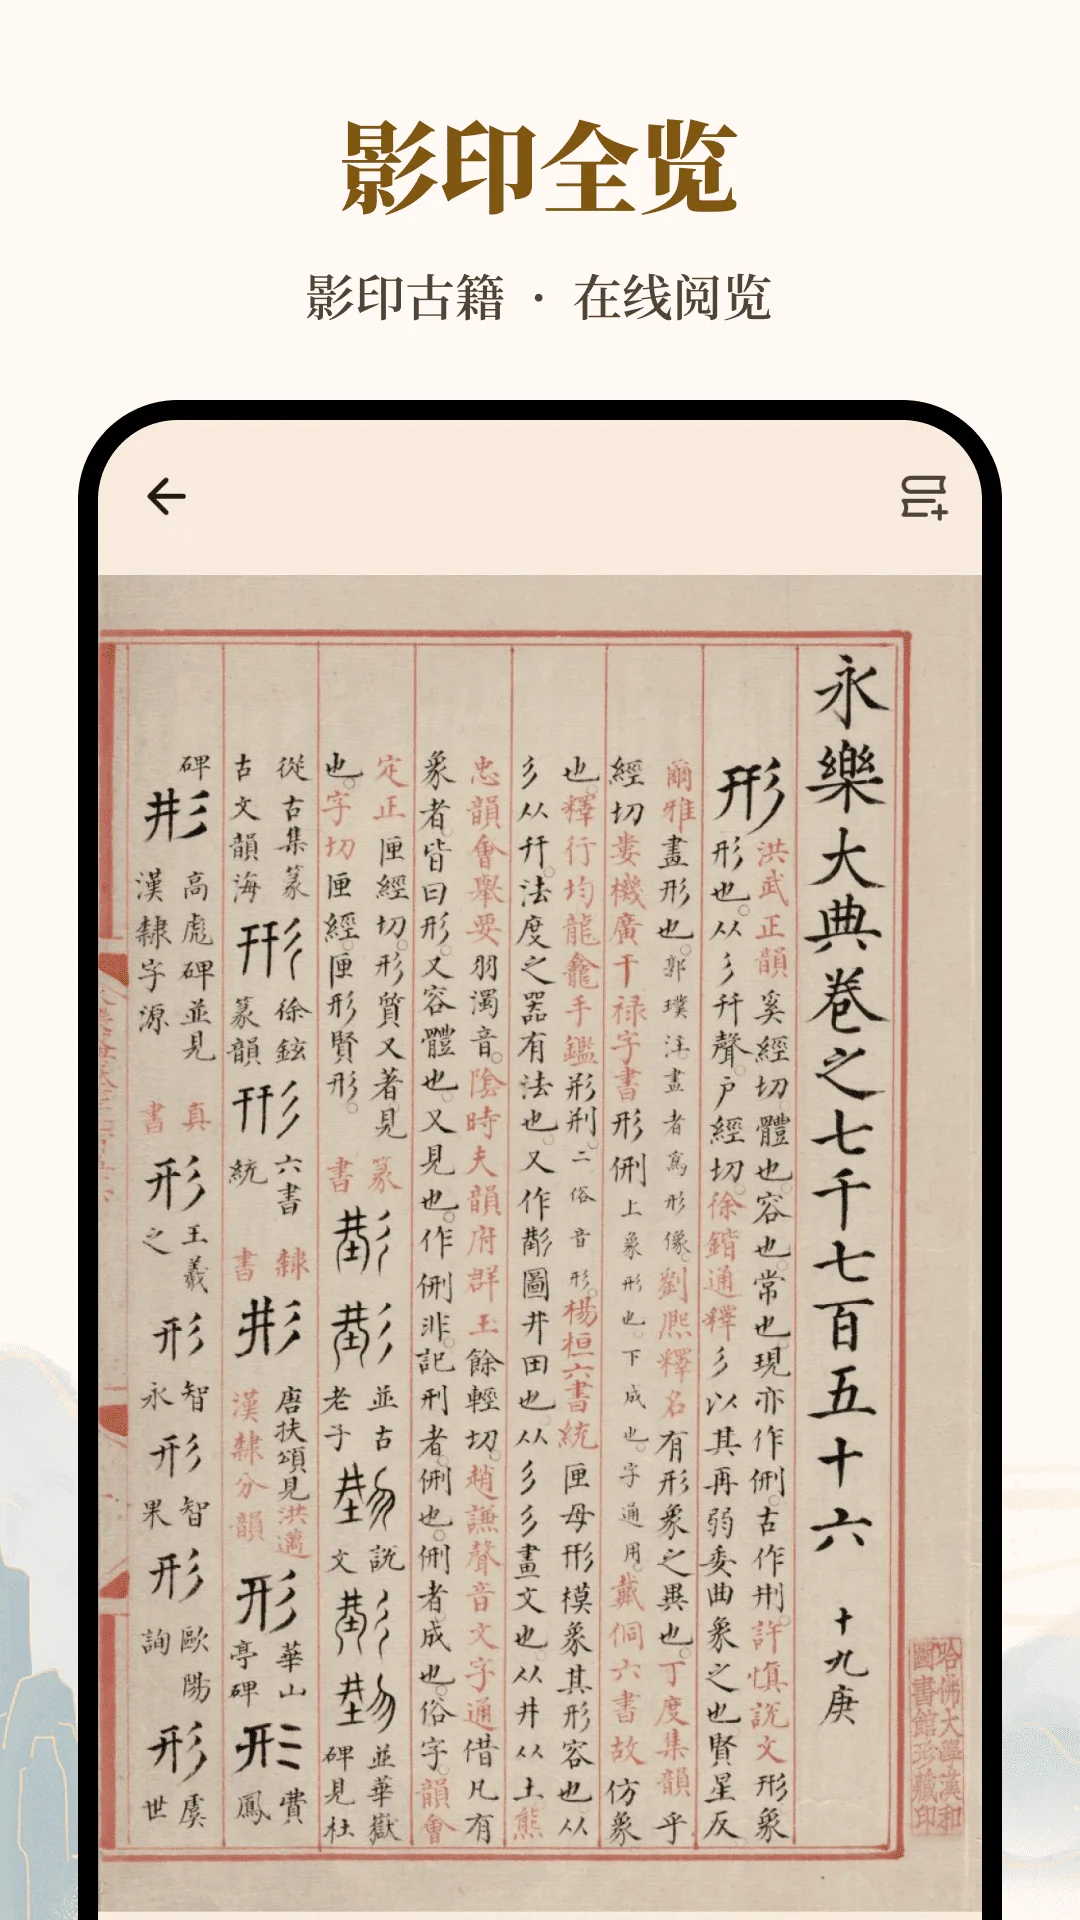 影印全览
影印古籍 · 在线阅览
永樂大典卷之七千七百五十六 十九庚
形
洪武正韻奚經切體也容也常也現亦作侀古作㓝許慎說文形象
形也从彡幵聲户經切徐鍇通釋彡以其再弱委曲象之也賢星反
爾雅畫形也郭璞注畫者為形像劉熙釋名有形象之異也丁度集韻乎
經切婁機廣干禄字書形侀上象形也下成也字通用戴侗六書故仿象
也釋行均龍龕手鑑形㓝二俗音形楊桓六書統匣母形模象其形容也从
彡从幵法度之器有法也又作圖井田也从彡彡畫文也从井从土熊
忠韻會舉要羽濁音陰時夫韻府群玉餘輕切趙謙聲音文字通借凡有
象者皆曰形又容體也又見也作侀非記刑者侀也侀者成也俗字韻會
定正匣經切形質又著見
也字切匣經匣形賢形
篆書
並古老子
說文
並華嶽碑見杜
從古集篆古文韻海
徐鉉篆韻
六書統
隸書
唐扶頌見洪邁漢隸分韻
華山亭碑
費鳳
碑
高彪碑並見漢隸字源
真書
形
王羲之
形
智永
形
智果
形
歐陽詢
形
虞世
哈佛大學漢和
圖書館珍藏印